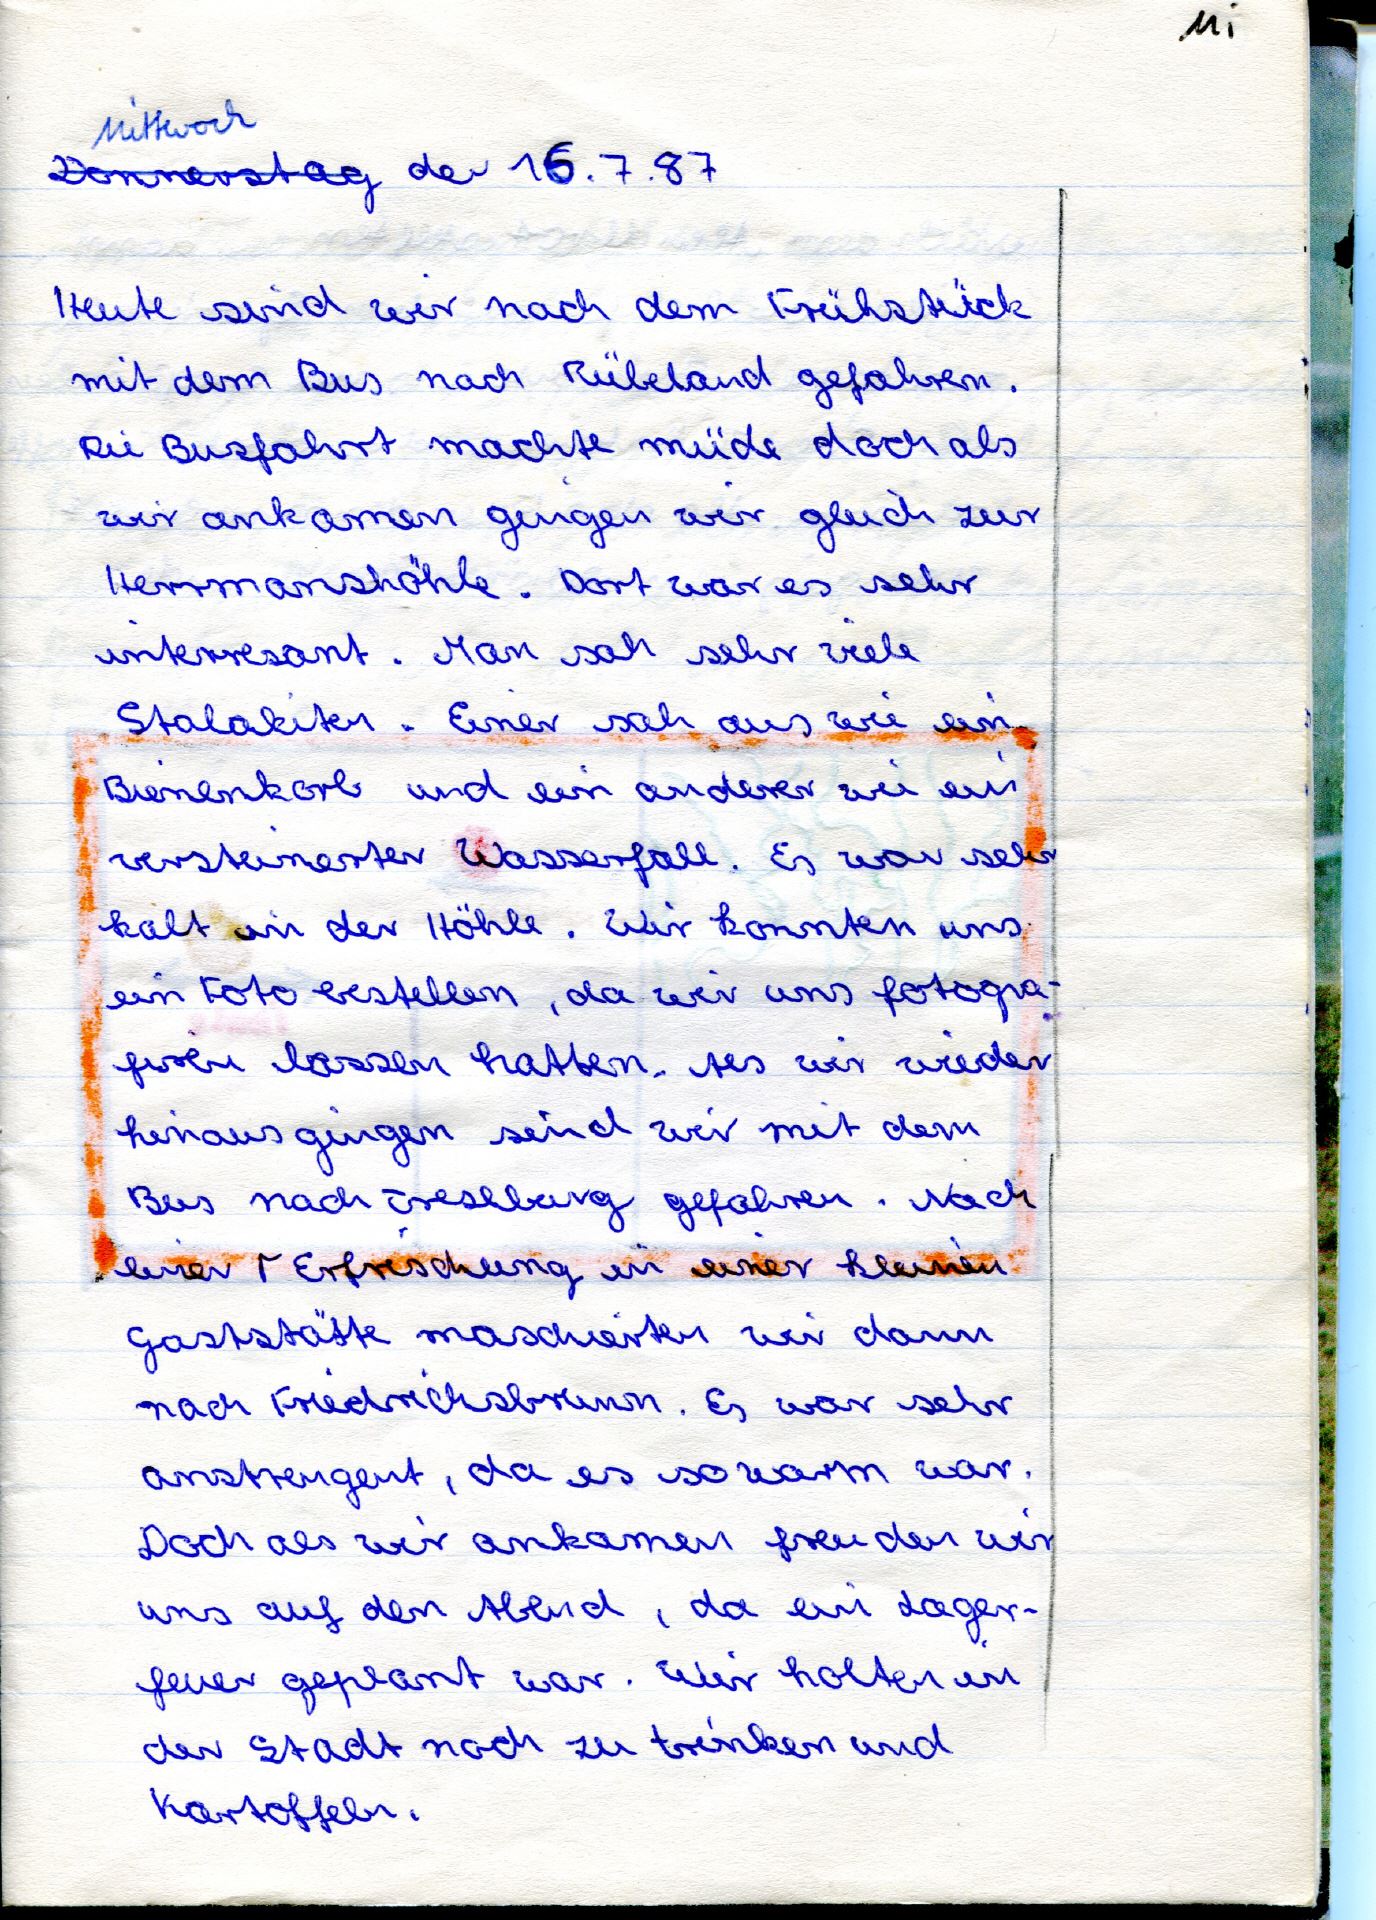 Mi
Mittwoch
Donnerstag der 16.7.87
Heute sind wir nach dem Frühstück
mit dem Bus nach Rübeland gefahren.
Die Busfahrt machte müde doch als
wir ankamen gingen wir gleich zur
Herrmanshöhle. Dort war es sehr
interresant. Man sah sehr viele
Stalakiten. Einer sah aus wie ein
Bienenkorb und ein anderer wie ein
versteinerter Wasserfall. Es war sehr
kalt in der Höhle. Wir konnten uns
ein Foto bestellen, da wir uns fotogra-
fieren lassen hatten. Als wir wieder
hinausgingen sind wir mit dem
Bus nach Treseburg gefahren. Nach
einer Erfrischung in einer kleinen
Gaststätte maschierten wir dann
nach Friedrichsbrunn. Es war sehr
anstrengent, da es so warm war.
Doch als wir ankamen freuden wir
uns auf den Abend, da ein Lager-
feuer geplant war. Wir holten in
der Stadt noch zu trinken und
Kartoffeln.